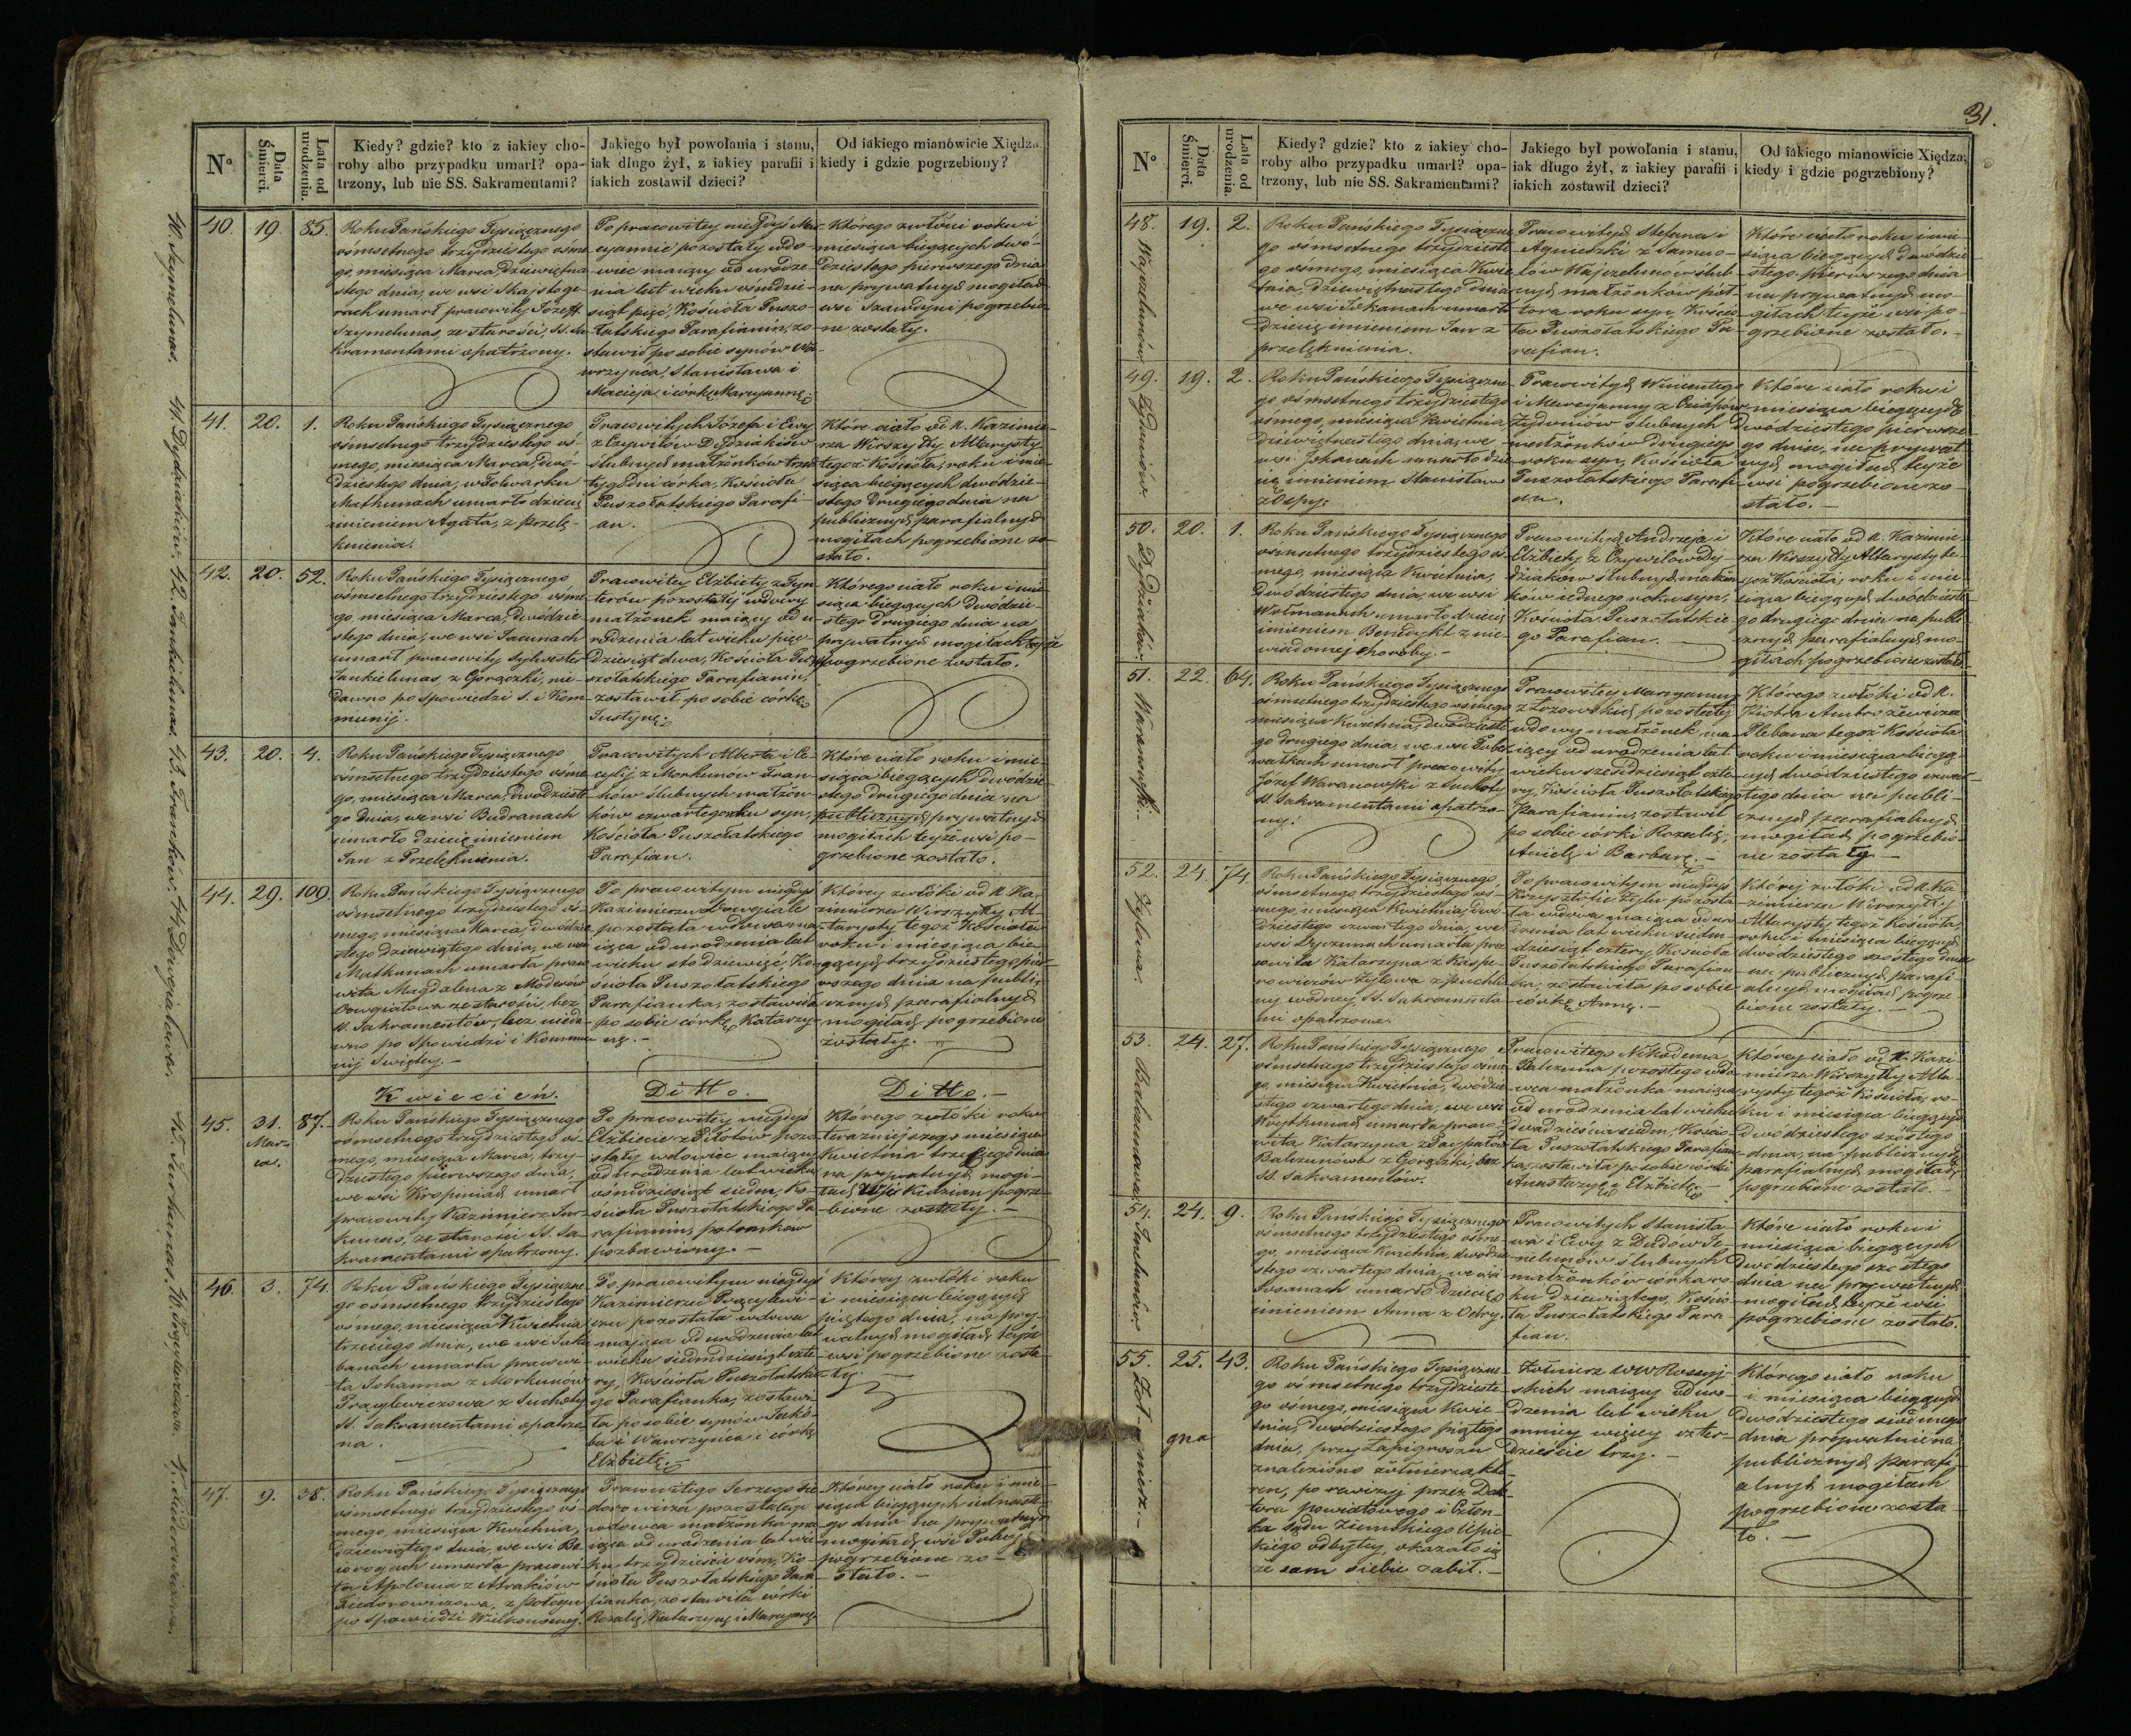 31.
Nº
Data Śmierci.
Lata od urodzenia.
Kiedy? gdzie? kto z iakiey cho-
roby albo przypadku umarł? opa-
trzony, lub nie SS. Sakramentami?
Jakiego był powołania i stanu,
iak długo żył, z iakiey parafii i
iakich zostawił dzieci?
Od iakiego mianowicie Xiędza,
kiedy i gdzie pogrzebiony?
40. 19. 85.
Roku Pańskiego Tysiącznego
ósmsetnego trzydziestego ósme-
go, miesiąca Marca, dziewiętna-
stego dnia, we wsi
umarł pracowity Józef
Szymelunas, ze starości, SS. Sa-
kramentami opatrzony.
Po pracowitey niegdyś Ma-
ryannie pozostały wdo-
wiec maiący od urodze-
nia lat wieku ośmdzie-
siąt pięć, Kościoła Puszo-
łatskiego Parafianin, zo-
stawił po sobie synów Wa-
wrzyńca, Stanisława i
Macieja, i córkę Maryannę.
Którego zwłóki roku i
miesiąca bieżących dwó-
dziestego pierwszego dnia
na prywatnych mogiłach
wsi pogrzebio-
ne zostały.
41. 20. 1.
Roku Pańskiego Tysiącznego
ósmsetnego trzydziestego ós-
mego, miesiąca Marca, dwó-
dziestego dnia, w folwarku
Matkunach umarło dziecię
imieniem Agata, z przelę-
knienia.
Pracowitych Józefa i Ewy
z Czywilów Dydziaków
ślubnych małżonków trzech
tygodni córka, Kościoła
Puszołatskiego Parafi-
an.
Które ciało od X. Kazimie-
rza Wirszyłły Altarysty
tegoż Kościoła, roku i mie-
siąca bieżących dwódzie-
stego drugiego dnia na
publicznych parafialnych
mogiłach pogrzebione zo-
stało.
42. 20. 52.
Roku Pańskiego Tysiącznego
ósmsetnego trzydziestego ósme-
go miesiąca Marca, dwódzie-
stego dnia, we wsi
umarł pracowity Sylwester
Jankielunas z Gorączki, nie-
dawno po Spowiedzi S. i Kom-
munij.
Pracowitey Elżbiety z
pozostałey wdowy
małżonek maiący od u-
rodzenia lat wieku pięć-
dziesiąt dwa, Kościoła Pu-
szołatskiego Parafianin,
zostawił po sobie córkę
Justynę.
Którego ciało roku i mie-
siąca bieżących dwódzie-
stego drugiego dnia na
prywatnych mogiłach tejże
pogrzebione zostało.
43. 20. 4.
Roku Pańskiego Tysiącznego
ósmsetnego trzydziestego ósme-
go, miesiąca Marca, dwódzieste-
go dnia, we wsi Budranach
umarło dziecię imieniem
Jan z Przelęknienia.
Pracowitych Alberta i Ce-
cylij z Morkunów Fran-
ków ślubnych małżon-
ków czwartego roku syn,
Kościoła Puszołatskiego
Parafian.
Które ciało roku i mie-
siąca bieżących dwódzie-
stego drugiego dnia na
publicznych prywatnych
mogiłach tejże wsi po-
grzebione zostało.
44. 29. 109.
Roku Pańskiego Tysiącznego
ósmsetnego trzydziestego ós-
mego, miesiąca Marca, dwódzie-
stego dziewiątego dnia, we wsi
Matkunach umarła praco-
wita Magdalena z Moderów
Dowgiałowa ze starości, bez
SS. Sakramentów, lecz nieda-
wno po Spowiedzi i Kommu-
nij Świętey.
Po pracowitym niegdyś
Kazimierzu Dowgiale
pozostała wdowa ma-
iąca od urodzenia lat
wieku sto dziewięć, Ko-
ścioła Puszołatskiego
Parafianka, zostawiła
po sobie córkę Katarzy-
nę.
Którey zwłóki od X. Ka-
zimierza Wirszyłły Al-
tarysty tegoż Kościoła
roku i miesiąca bie-
żących trzydziestego pier-
wszego dnia na publi-
cznych parafialnych
mogiłach pogrzebione
zostały.
Kwiecień. Ditto. Ditto.
45. 31. Marca. 87.
Roku Pańskiego Tysiącznego
ósmsetnego trzydziestego ós-
mego, miesiąca Marca, trzy-
dziestego pierwszego dnia,
we wsi Kropiniach umarł
pracowity Kazimierz Jur-
kunas, ze starości SS. Sa-
kramentami opatrzony.
Po pracowitey niegdyś
Elżbiecie z Pilotów pozo-
stały wdowiec maiący
od urodzenia lat wieku
ośmdziesiąt siedm, Ko-
ścioła Puszołatskiego Pa-
rafianin, potomków
pozbawiony.
Którego zwłóki roku
teraznieyszego miesiąca
Kwietnia trzeciego dnia
na prywatnych mogi-
łach wsi Kidzian pogrze-
bione zostały.
46. 3. 74.
Roku Pańskiego Tysiączne-
go ósmsetnego trzydziestego
ósmego, miesiąca Kwietnia
trzeciego dnia, we wsi
umarła pracowi-
ta Johanna z Morkunów
Pracylewiczowa z Suchoty
SS. Sakramentami opatrzo-
na.
Po pracowitym niegdyś
Kazimierzu Pracylewi-
czu pozostała wdowa
maiąca od urodzenia lat
wieku siedmdziesiąt czte-
ry, Kościoła Puszołatskie-
go Parafianka, zostawi-
ła po sobie synów Jakó-
ba i Wawrzyńca i córkę
Elżbietę.
Którey zwłóki roku
i miesiąca bieżących
piątego dnia, na pry-
watnych mogiłach tejże
wsi pogrzebione zosta-
ły.
47. 9. 38.
Roku Pańskiego Tysiącznego
ósmsetnego trzydziestego ós-
mego, miesiąca Kwietnia,
dziewiątego dnia, we wsi
umarła pracowi-
ta Apolonia z
Fiedorowiczowa, z połogu
po Spowiedzi Wielkonocney.
Pracowitego Jerzego Fie-
dorowicza pozostałego
wdowca małżonka ma-
iąca od urodzenia lat wie-
ku trzydzieście ośm, Ko-
ścioła Puszołatskiego Para-
fianka, zostawiła córki
Rozalię, Katarzynę i Maryannę.
Którey ciało roku i mie-
siąca bieżących iednaste-
go dnia na prywatnych
mogiłach wsi
pogrzebione zo-
stało.
40. Szymelunas. 41. Dydziaków. 42. Jankielunas. 43. Franków. 44. Dowgiałowa. 45. Jurkunas. 46. Pracylewiczowa. 47. Fiedorowiczowa.
Nº
Data Śmierci.
Lata od urodzenia.
Kiedy? gdzie? kto z iakiey cho-
roby albo przypadku umarł? opa-
trzony, lub nie SS. Sakramentami?
Jakiego był powołania i stanu,
iak długo żył, z iakiey parafii i
iakich zostawił dzieci?
Od iakiego mianowicie Xiędza,
kiedy i gdzie pogrzebiony?
48. 19. 2.
Roku Pańskiego Tysiączne-
go ósmsetnego trzydzieste-
go ósmego, miesiąca Kwie-
tnia, dziewiętnastego dnia
we wsi Jokanach umarło
dziecię imieniem Jan z
przelęknienia.
Pracowitych Stefana i
Agnieszki z
ślub-
nych małżonków pół-
tora roku syn, Kościo-
ła Puszołatskiego Pa-
rafian.
Które ciało roku i mie-
siąca bieżących dwódzie-
stego pierwszego dnia
na prywatnych mo-
giłach tejże wsi po-
grzebione zostało.
49. 19. 2.
Roku Pańskiego Tysiączne-
go ósmsetnego trzydziestego
ósmego, miesiąca Kwietnia
dziewiętnastego dnia, we
wsi Jokanach umarło dzie-
cię imieniem Stanisław
z Ospy.
Pracowitych Wincentego
i Maryanny z
ślubnych
małżonków drugiego
roku syn, Kościoła
Puszołatskiego Parafi-
an.
Które ciało roku i
miesiąca bieżących
dwódziestego pierwsze-
go dnia, na prywat-
nych mogiłach tejże
wsi pogrzebione zo-
stało.
50. Dydziaków. 20. 1.
Roku Pańskiego Tysiącznego
ósmsetnego trzydziestego ós-
mego, miesiąca Kwietnia,
dwódziestego dnia, we wsi
Wołmanach umarło dziecię
imieniem Benedykt z nie-
wiadomey choroby.
Pracowitych Andrzeja i
Elżbiety z Czywilów Dy-
dziaków ślubnych małżon-
ków iednego roku syn,
Kościoła Puszołatskie-
go Parafian.
Które ciało od X. Kazimie-
rza Wirszyłły Altarysty te-
goż Kościoła, roku i mie-
siąca bieżących dwódzieste-
go drugiego dnia na publi-
cznych parafialnych mo-
giłach pogrzebione zostało.
51. Waranowski. 22. 64.
Roku Pańskiego Tysiącznego
ósmsetnego trzydziestego ósmego
miesiąca Kwietnia, dwódzieste-
go drugiego dnia, we wsi
umarł pracowity
Józef Waranowski z Suchoty
SS. Sakramentami opatrzo-
ny.
Pracowitey Maryanny
pozostałey
wdowy małżonek, ma-
iący od urodzenia lat
wieku sześdziesiąt czte-
ry, Kościoła Puszołatskiego
Parafianin, zostawił
po sobie córki Rozalię,
Anielę i Barbarę.
Którego zwłóki od X.
Piotra Ambrożewicza
Plebana tegoż Kościoła
roku i miesiąca bieżą-
cych dwódziestego czwar-
tego dnia na publi-
cznych parafialnych
mogiłach pogrzebio-
ne zostały.
52. Żylowa. 24. 74.
Roku Pańskiego Tysiącznego
ósmsetnego trzydziestego ós-
mego, miesiąca Kwietnia, dwó-
dziestego czwartego dnia, we
wsi umarła pra-
cowita Katarzyna z Kasp-
rowiczów Żylowa z Puchli-
ny wodney, SS. Sakramenta-
mi opatrzona.
Po pracowitym niegdyś
Krzysztofie Żylu pozosta-
ła wdowa maiąca od uro-
dzenia lat wieku siedm-
dziesiąt cztery, Kościoła
Puszołatskiego Parafian-
ka, zostawiła po sobie
córkę Annę.
Którey zwłóki od X. Ka-
zimierza Wirszyłły
Altarysty tegoż Kościoła,
roku i miesiąca bieżących
dwódziestego szóstego dnia
na publicznych parafi-
alnych mogiłach pogrze-
bione zostały.
53. Balczunowa. 24. 27.
Roku Pańskiego Tysiącznego
ósmsetnego trzydziestego ósme-
go, miesiąca Kwietnia, dwódzie-
stego czwartego dnia, we wsi
umarła praco-
wita Katarzyna z
Balczunowa z Gorączki, bez
SS. Sakramentów.
Pracowitego Nikodema
Balczuna pozostałego wdo-
wca małżonka maiąca
od urodzenia lat wieku
dwadzieścia siedm, Kościo-
ła Puszołatskiego Parafian-
ka, zostawiła po sobie córki
Anastazyę i Elżbietę.
Którey ciało od X. Kazi-
mierza Wirszyłły Alta-
rysty tegoż Kościoła, ro-
ku i miesiąca bieżących
dwódziestego szóstego
dnia, na publicznych
parafialnych mogiłach
pogrzebione zostało.
54. 24. 9.
Roku Pańskiego Tysiącznego
ósmsetnego trzydziestego ósme-
go, miesiąca Kwietnia, dwódzie-
stego czwartego dnia, we wsi
umarło dziecię
imieniem Anna z Odry.
Pracowitych Stanisła-
wa i Ewy z Dudów
ślubnych
małżonków córka ro-
ku dziewiątego, Kościo-
ła Puszołatskiego Para-
fian.
Które ciało roku i
miesiąca bieżących
dwódziestego szóstego
dnia na prywatnych
mogiłach tejże wsi
pogrzebione zostało.
55. Żołnierz. 25. 43.
Roku Pańskiego Tysiączne-
go ósmsetnego trzydzieste-
go ósmego, miesiąca Kwie-
tnia, dwódziestego piątego
dnia, przy
znaleziono żołnierza, któ-
ren, po rewizyi przez Dok-
tora powiatowego i Człon-
ka sądu Ziemskiego Upic-
kiego odbytey, okazało się
że sam siebie zabił.
Żołnierz WW Rossyj-
skich maiący od uro-
dzenia lat wieku
mniey więcey czter-
dzieście trzy.
Którego ciało roku
i miesiąca bieżących
dwódziestego siódmego
dnia prywatnie na
publicznych parafi-
alnych mogiłach
pogrzebione zosta-
ło.